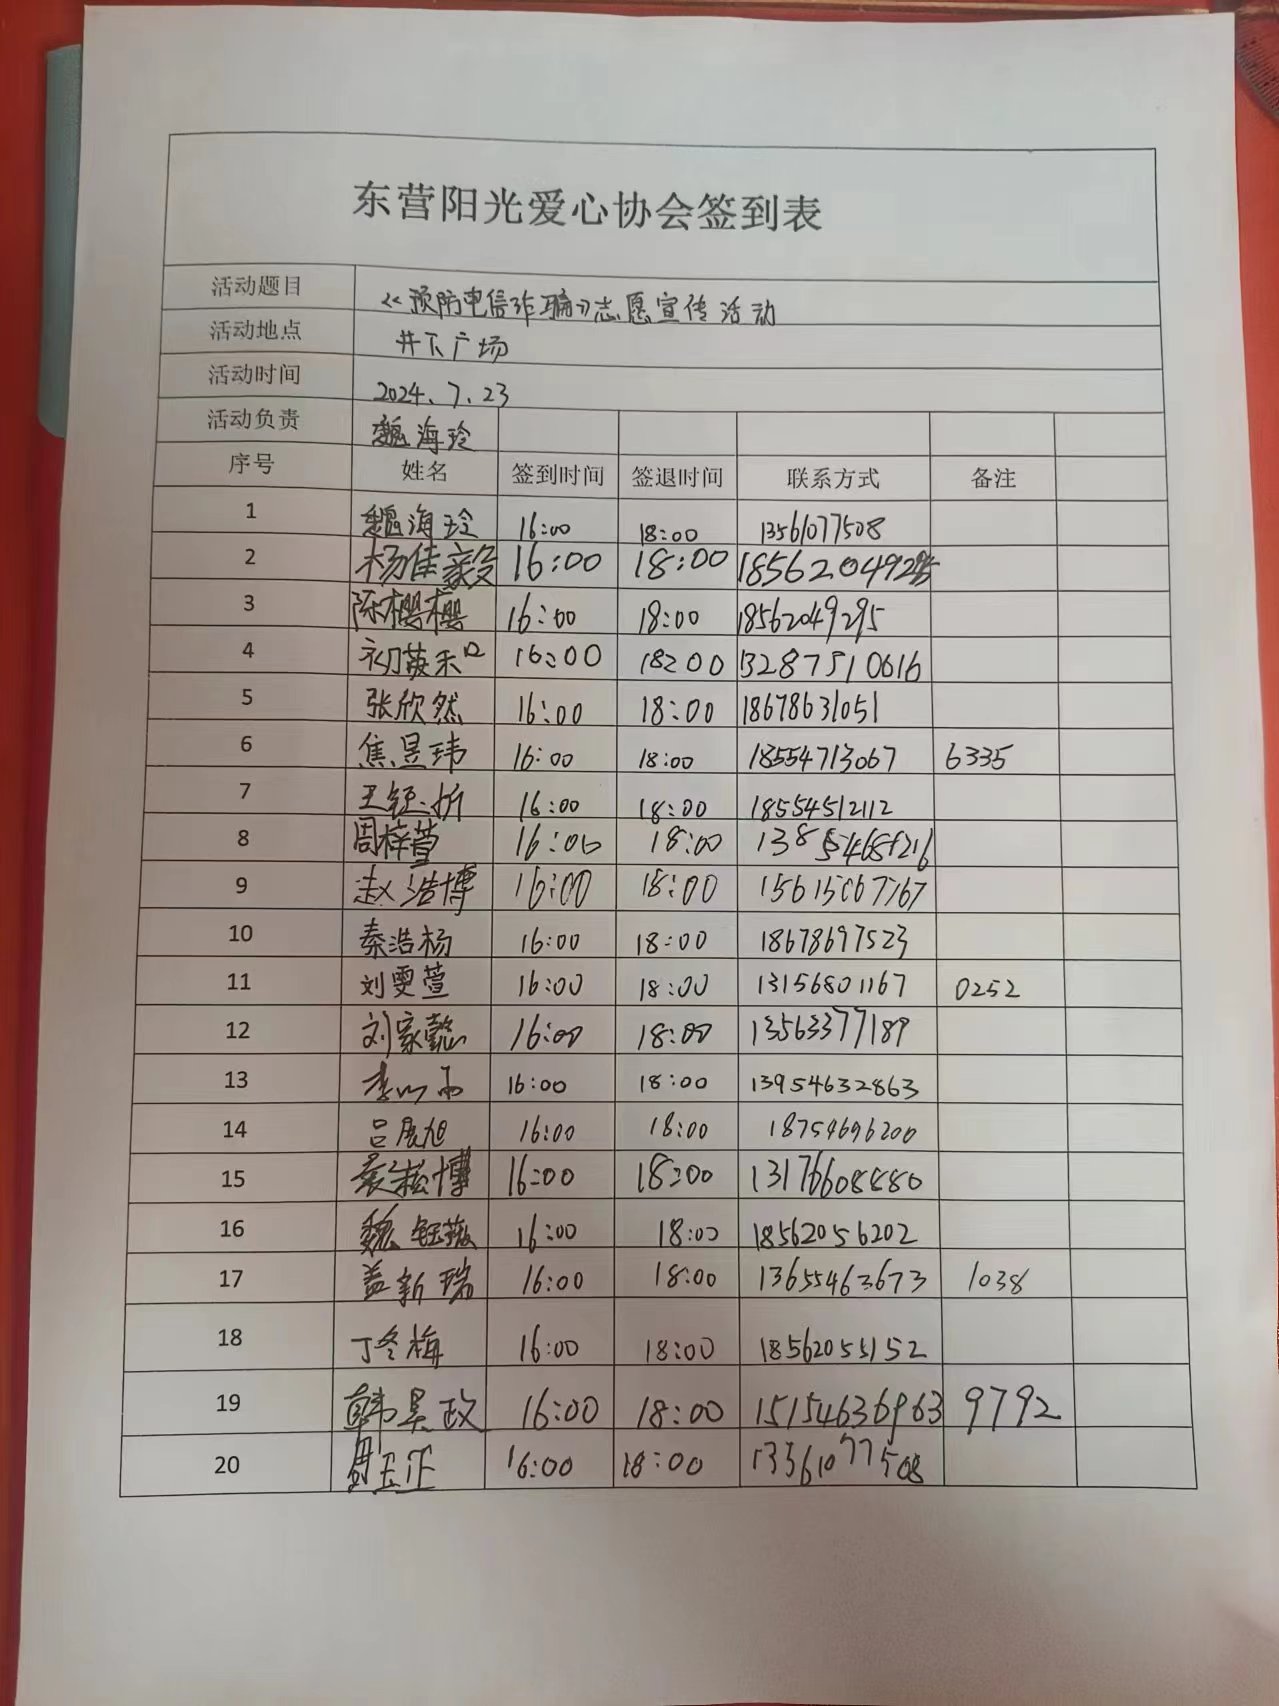 东营阳光爱心协会签到表
活动题目 《预防电信诈骗》志愿宣传活动
活动地点 井下广场
活动时间 2024.7.23
活动负责 魏海玲
序号 姓名 签到时间 签退时间 联系方式 备注
1 魏海玲 16:00 18:00 13561077508
2 杨佳毅 16:00 18:00
3 陈樱樱 16:00 18:00 18562049295
4 16:00 18:00 13287510616
5 张欣然 16:00 18:00 18678631051
6 焦昱玮 16:00 18:00 18554713067 6335
7 16:00 18:00 18554512112
8 周梓萱 16:00 18:00
9 赵浩博 16:00 18:00 15615067767
10 秦浩杨 16:00 18:00 18678697523
11 刘雯萱 16:00 18:00 13156801167 0252
12 刘家懿 16:00 18:00 13563377189
13 16:00 18:00 13954632863
14 吕展旭 16:00 18:00 18754696200
15 16:00 18:00
16 魏钰薇 16:00 18:00 18562056202
17 盖新瑞 16:00 18:00 13655463673 1038
18 丁冬梅 16:00 18:00 18562055152
19 韩昊政 16:00 18:00 15154636963 9792
20 16:00 18:00 13361077508